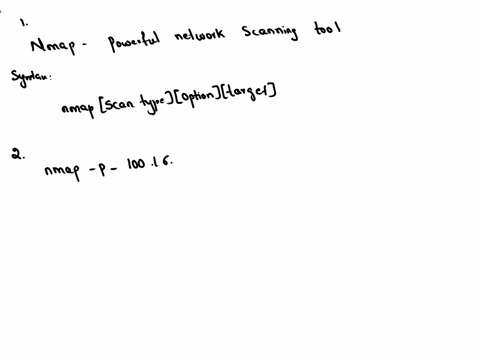 1.
Nmap - Powerful network scanning tool
Syntax:
nmap [scan type][option][target]
2.
nmap -p- 100.16.